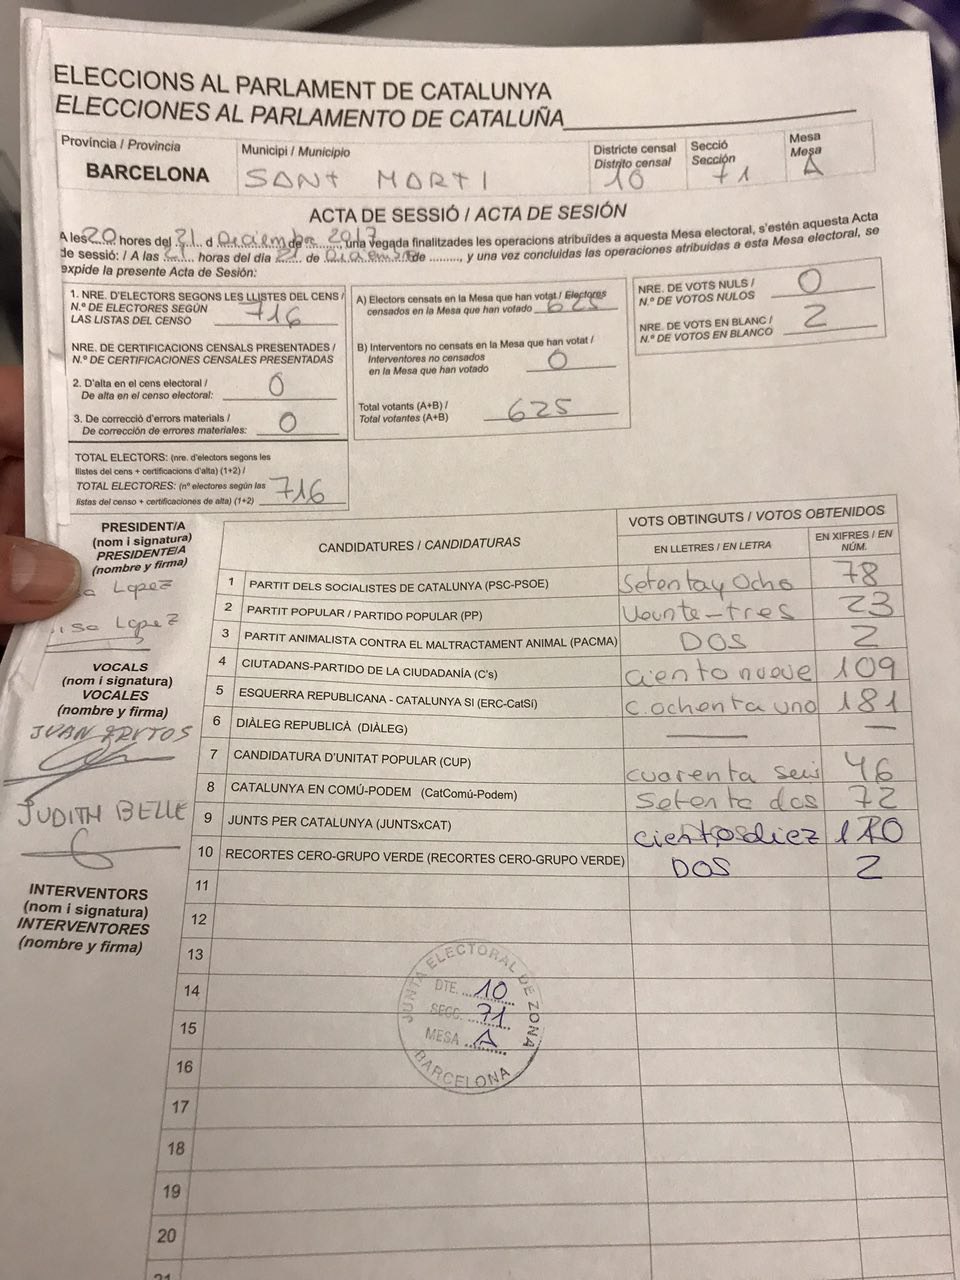 ELECCIONS AL PARLAMENT DE CATALUNYA
ELECCIONES AL PARLAMENTO DE CATALUÑA
Província / Provincia
BARCELONA
Municipi / Municipio
SANT MARTI
Districte censal
Distrito censal
10
Secció
Sección
71
Mesa
Mesa
A
ACTA DE SESSIÓ / ACTA DE SESIÓN
A les 20 hores del 21 d Diciembre de 2017 una vegada finalitzades les operacions atribuïdes a aquesta Mesa electoral, s'estén aquesta Acta
de sessió: / A las 21 horas del día 21 de Diciembre de ........., y una vez concluidas las operaciones atribuidas a esta Mesa electoral, se
expide la presente Acta de Sesión:
1. NRE. D'ELECTORS SEGONS LES LLISTES DEL CENS /
N.º DE ELECTORES SEGÚN
LAS LISTAS DEL CENSO 716
NRE. DE CERTIFICACIONS CENSALS PRESENTADES /
N.º DE CERTIFICACIONES CENSALES PRESENTADAS
2. D'alta en el cens electoral /
De alta en el censo electoral: 0
3. De correcció d'errors materials /
De corrección de errores materiales: 0
TOTAL ELECTORS: (nre. d'electors segons les
llistes del cens + certificacions d'alta) (1+2) /
TOTAL ELECTORES: (nº electores según las
listas del censo + certificaciones de alta) (1+2) 716
A) Electors censats en la Mesa que han votat / Electores
censados en la Mesa que han votado 625
B) Interventors no censats en la Mesa que han votat /
Interventores no censados
en la Mesa que han votado 0
Total votants (A+B) /
Total votantes (A+B) 625
NRE. DE VOTS NULS /
N.º DE VOTOS NULOS 0
NRE. DE VOTS EN BLANC /
N.º DE VOTOS EN BLANCO 2
PRESIDENT/A
(nom i signatura)
PRESIDENTE/A
(nombre y firma)
Lopez
Lopez
VOCALS
(nom i signatura)
VOCALES
(nombre y firma)
JUAN FRUTOS
JUDITH BELLE
INTERVENTORS
(nom i signatura)
INTERVENTORES
(nombre y firma)
CANDIDATURES / CANDIDATURAS
VOTS OBTINGUTS / VOTOS OBTENIDOS
EN LLETRES / EN LETRA
EN XIFRES / EN
NÚM.
1 PARTIT DELS SOCIALISTES DE CATALUNYA (PSC-PSOE) Setenta y Ocho 78
2 PARTIT POPULAR / PARTIDO POPULAR (PP) Veinte-tres 23
3 PARTIT ANIMALISTA CONTRA EL MALTRACTAMENT ANIMAL (PACMA) DOS 2
4 CIUTADANS-PARTIDO DE LA CIUDADANÍA (C's) ciento nueve 109
5 ESQUERRA REPUBLICANA - CATALUNYA SI (ERC-CatSí) c. ochenta uno 181
6 DIÀLEG REPUBLICÀ (DIÀLEG) — —
7 CANDIDATURA D'UNITAT POPULAR (CUP) cuarenta seis 46
8 CATALUNYA EN COMÚ-PODEM (CatComú-Podem) Setenta dos 72
9 JUNTS PER CATALUNYA (JUNTSxCAT) 110
10 RECORTES CERO-GRUPO VERDE (RECORTES CERO-GRUPO VERDE) DOS 2
11
12
13
14
15
16
17
18
19
20
21
JUNTA ELECTORAL DE ZONA
DTE. 10
SECC. 71
MESA A
BARCELONA